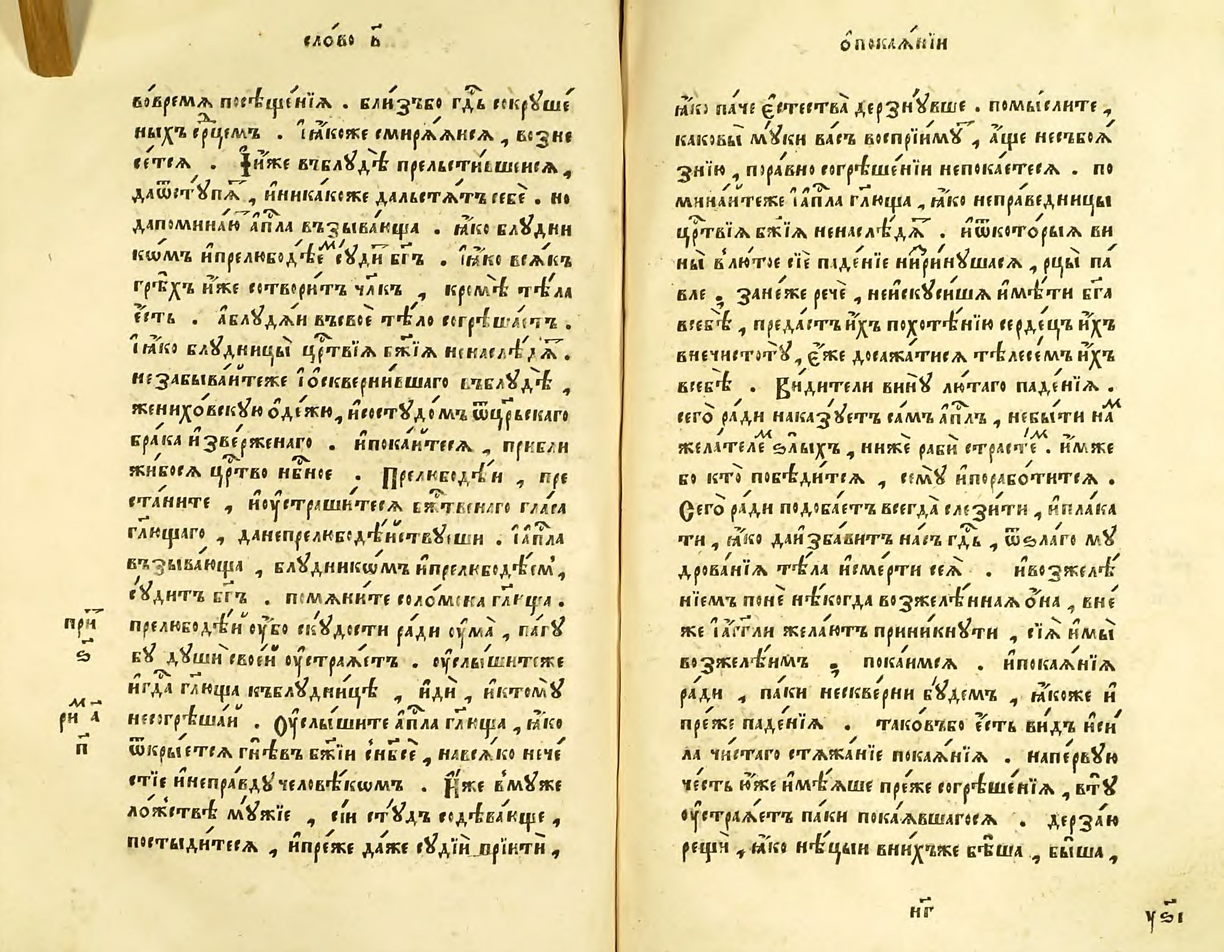 сло́во в҃
во́времѧ посѣще́нїѧ . бли́зъбо гдⷭ҇ь сокрꙋше́
ныхъ срⷣцемъ . і҆ꙗ҆́коже смирѧ́ѧисѧ , возне
се́тсѧ . І҆и҆́же въблꙋ́дѣ прельсти́вшеисѧ ,
даѿстꙋ́пѧⷮ , и҆никакоже дальстѧ́тъ себѐ . но
дапомина́ю а҆пⷭ҇ла възыва́юща . ꙗ҆́ко блꙋдни
кѡ́мъ и҆прелюбодѣ́еⷨ сꙋ́диⷮ бг҃ъ . і҆ꙗ҆́ко всѧ́къ
грѣ́хъ и҆́же сотвори́тъ чл҃къ , кромѣ̀ тѣ́ла
є҆́сть . а҆блꙋдѧ́и въсвоѐ тѣ́ло согрѣша́етъ .
і҆ꙗ҆́ко блꙋдницы̀ црⷭ҇твїѧ бж҃їѧ ненаслѣ́дѧⷮ .
незабыва́йтеже і҆ѻ҆скверни́вшаго въблꙋ́дѣ ,
женихо́вскꙋю ѻ҆де́жю , и҆состꙋдо́мъ ѿцр҃ьскаго
бра́ка и҆зве́рженаго . и҆пока́йтесѧ , прибли
жи́босѧ црⷭ҇тво нбⷭ҇ное . Прелюбодѣ́и , пре
ста́ните , и҆оу҆страши́тесѧ бжⷭ҇твенаго гла́са
гл҃ющаго , данепрелюбодѣ́йствꙋеши . і҆а҆пⷭ҇ла
възыва́юща , блꙋдникѡ́мъ и҆прелюбодѣ́ем ,
сꙋ́дитъ бг҃ъ . помѧни́те соломо́на гл҃юща .
при́ⷮ
прелюбодѣ́й оу҆́бо скꙋ́дости ра́ди оу҆ма̀ , па́гꙋ
ѕ҃
бꙋ дꙋшѝ свое́й оу҆страѧ́етъ . оу҆слы́шитеже
и҆гдⷭ҇а гл҃юща къблꙋдни́цѣ , и҆дѝ , и҆ктомꙋ̀
ма
ри а҃
несогрѣша́й . Оу҆слы́шите а҆пⷭ҇ла гл҃юща , ꙗ҆́ко
п҃
ѿкры́етсѧ гнѣ́въ бж҃їи снб҃сѐ , навсѧ́ко нече́
стїе и҆непра́вдꙋ человѣ́кѡмъ . И҆́же в̾мꙋже
ло́жствѣ мꙋ́жїе , сі́и стꙋ́дъ содѣва́юще ,
постыди́тесѧ , и҆пре́же да́же сꙋдїѝ прїитѝ ,
ѻ҆покаѧ́нїи
ꙗ҆́ко па́че є҆стества̀ дерзнꙋ́вше . помы́слите ,
каковы̀ мꙋ́ки ва́съ воспрїи́мꙋⷮ , а҆́ще несъбоѧ́
знїю , пора́вно согрѣше́нїи непока́етесѧ . по
мина́йтеже і҆а҆пⷭ҇ла гл҃юща , ꙗ҆́ко непра́ведницы
црⷭ҇твїѧ бж҃їѧ ненаслѣ́дѧⷮ . и҆ѿкото́рыѧ ви
ны̀ в̾лю́тое сїѐ паде́нїе нири́нꙋшасѧ , рцы̀ па́
вле ; занѐже речѐ , неи҆скꙋси́шѧ и҆мѣ́ти бг҃а
всебѣ̀ , предасть и҆́хъ похотѣ́нїю серде́цъ и҆́хъ
внечистотꙋ̀ , є҆́же досажа́тисѧ тѣлесе́мъ и҆́хъ
всебѣ̀ . Ви́дители винꙋ̀ лю́таго паде́нїѧ .
сего̀ ра́ди наказꙋ́етъ са́мъ а҆пⷭ҇лъ , небы́ти наⷨ
жела́телеⷨ ѕлы́хъ , нижѐ рабѝ страсте́ⷨ . и҆́мже
бо кто̀ побѣ́дитсѧ , семꙋ̀ и҆порабо́титсѧ .
Сего̀ ра́ди подоба́етъ всегда̀ слези́ти , и҆пла́ка
ти , ꙗ҆́ко даи҆зба́витъ на́съ гдⷭ҇ь , ѿѕла́го мꙋ
дрова́нїѧ тѣ́ла и҆сме́рти сеѧ̀ . и҆возжелѣ́
нїемъ понѐ нѣ́когда возжелѣ́ннаѧ ѻ҆́на , вне́
же і҆а҆́гг҃ли жела́ютъ прини́кнꙋти , сїѧ̀ и҆мы̀
возжелѣ́имъ ; пока́имсѧ . и҆покаѧ́нїѧ
ра́ди , па́ки нескве́рни бꙋ́демъ , ꙗ҆́коже и҆
пре́же паде́нїѧ . тако́въбо є҆́сть ви́дъ и҆си́
ла чи́стаго стѧжа́нїе покаѧ́нїѧ . напе́рвꙋю
че́сть ю҆́же и҆мѣ́ѧше пре́же согрѣше́нїѧ , втꙋ̀
оу҆страѧ́етъ па́ки пока́ѧвшагосѧ . дерза́ю
рещѝ , ꙗ҆́ко нѣ́цыи вни́хъже бѣ́ша , бы́ша ,
нг҃
уѕ҃і